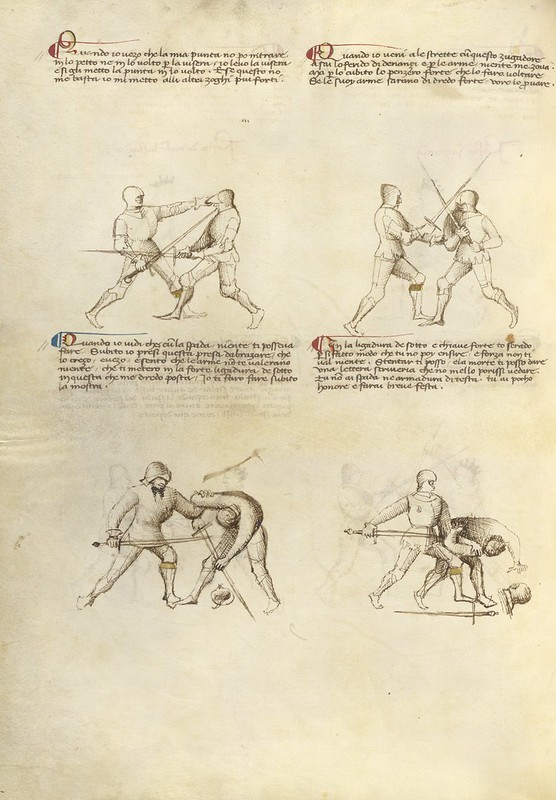 Quando io vezo che la mia punta no po intrare
in lo petto ne in lo volto p la visera · io levo la visera
e sì gli metto la punta in lo volto · E se questo no
me basta io mi metto alli altri zoghi piu forti ·
Quando io veni a le strette cū questo zugadore
e p le arme niente me zova ·
p lo cubito lo penzero forte che lo faro voltare
Se le suoy arme sarano di dredo forte voro lo p̱uare ·
Quando io vidi che cū la spada niente ti posseva
fare Subito io presi questa presa d'abrazare che
io crezo e vezo e sento che le arme nō te valerano
niente che ti meterò in la forte ligadura de sotto
in questa che me dredo posta io ti faro subito
la mostra ·
In la ligadura de sotto e chiave forte to serado
p si fatto modo che tu no poy ensire e forza non ti
val niente Stentar ti posso e la morte ti posso dare
una lettera scriveria che no mello porissi vedare
Tu no ai spada ne armadura di testa tu ai pocho
honore e farai breve festa ·